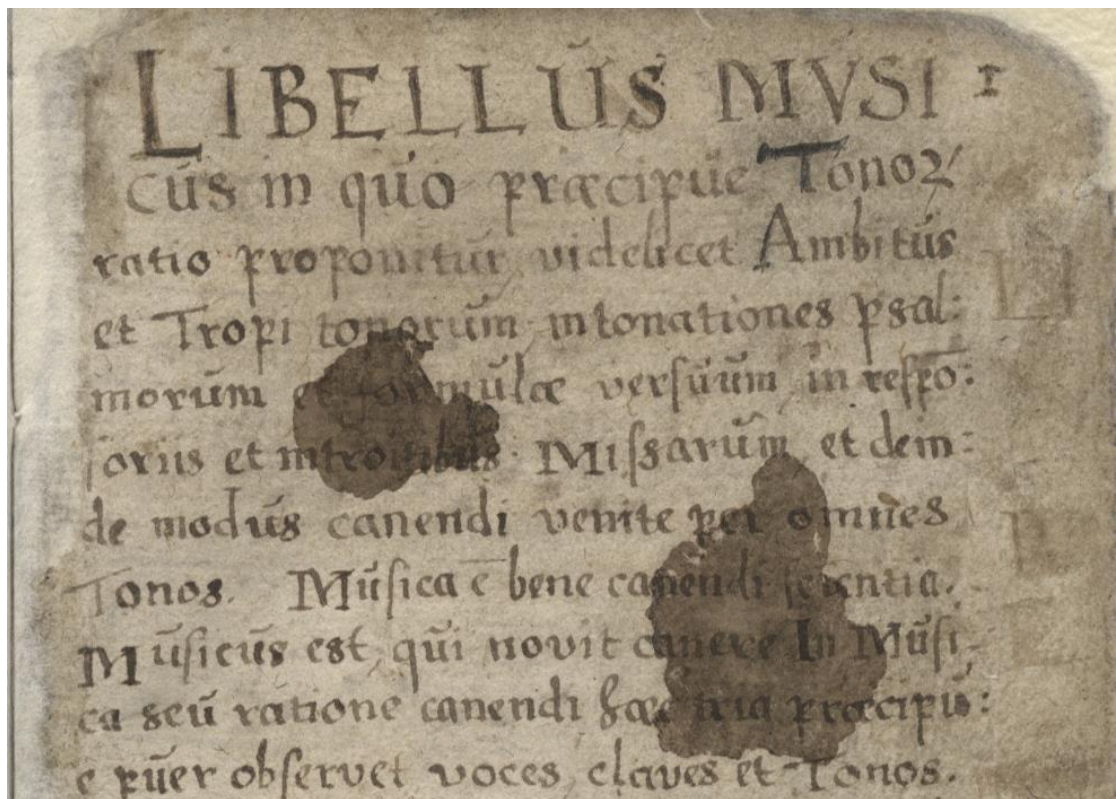 LIBELLUS MVSI 1
cus in quo præcipue Tonoꝝ
ratio proponitur videlicet Ambitus
et Tropi tonorum intonationes psal:
morum et formulæ versuum in respō:
soriis et introitibus Missarum et dein:
de modus canendi venite per omnes
Tonos. Musica ē bene canendi scientia.
Musicus est qui novit canere In Musi,
ca seu ratione canendi hæc tria præcipu:
e puer observet voces, claves et Tonos.